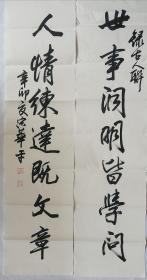 錄古人聯
世事洞明皆學問
人情練達既文章
辛卯夏